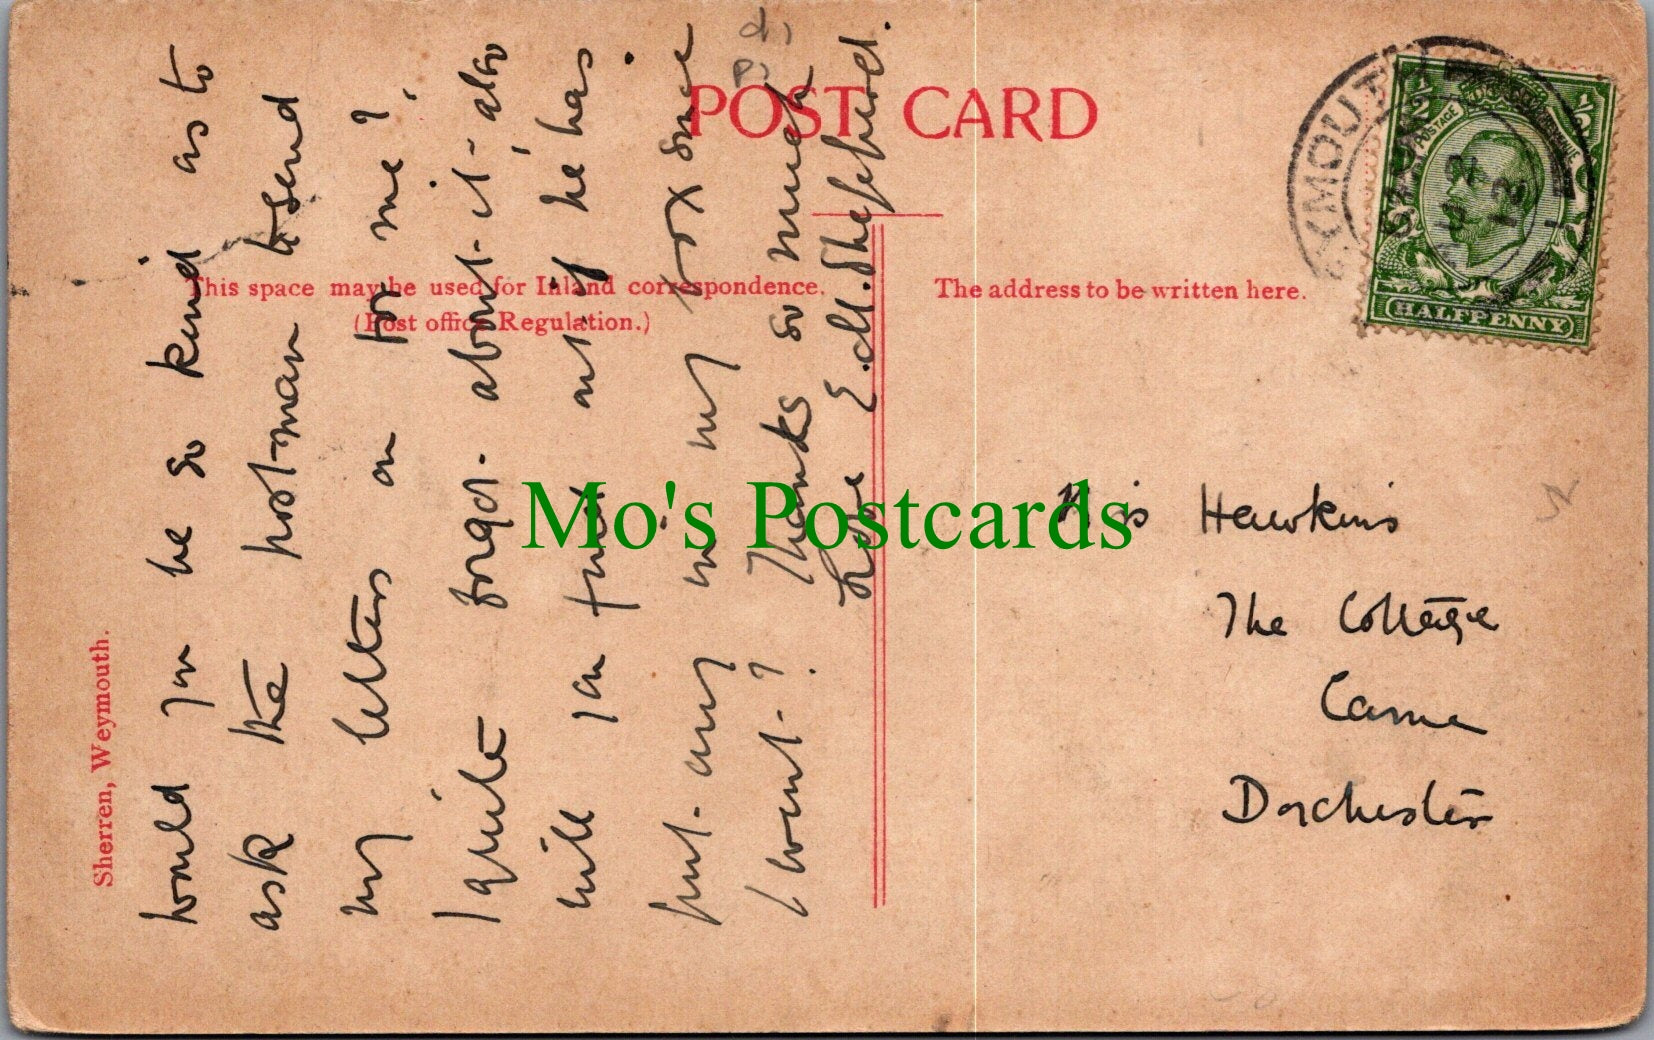 POST CARD
This space may be used for Inland correspondence.
(Post office Regulation.)
The address to be written here.
Sherren, Weymouth.
would you be so kind as to
ask the postman to send
my letters on for me?
I quite forgot about it - also
will you find out if he has
put any in my box since
I went?
Thanks so much
Love E.M. Shepherd.
Mis Hawkins
The Cottage
Came
Dorchester
EYMOUTH
12
POSTAGE
REVENUE
1/2
1/2
HALFPENNY
Mo's Postcards